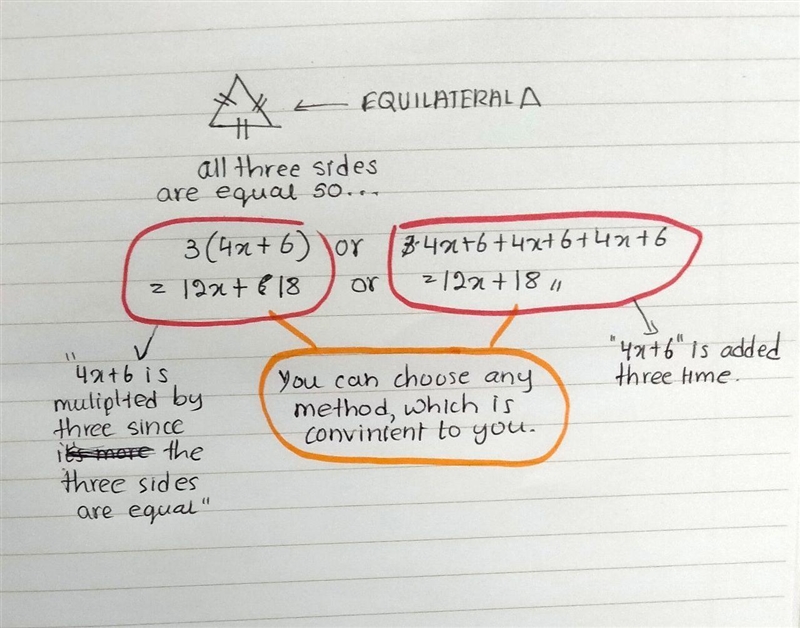 EQUILATERAL △
all three sides
are equal so...
3(4x+6) or 4x+6+4x+6+4x+6
= 12x+18 or =12x+18 〃
"4x+6 is
muliplted by
three since
its more the
three sides
are equal"
You can choose any
method, which is
convinient to you.
"4x+6" is added
three time.